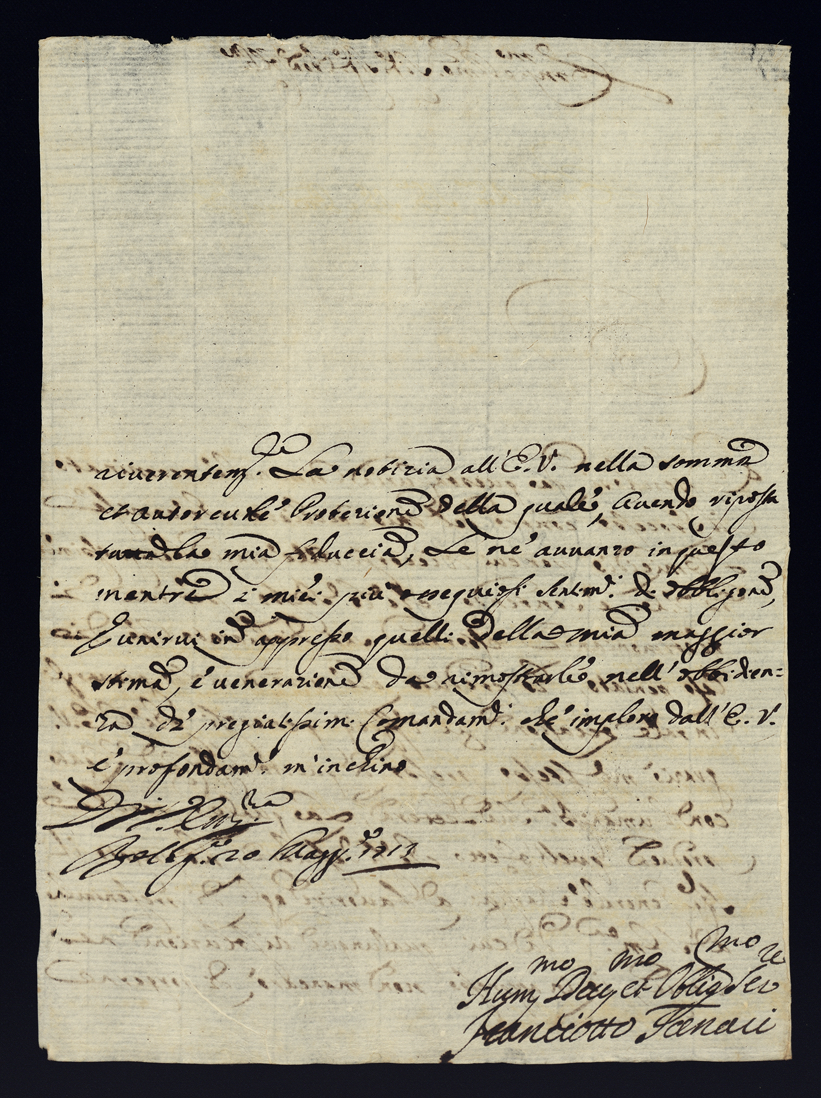 riverentem.te La notizia all' E. V. nella somma
et autorevole Protezione della quale, avendo riposta
tutta la mia fiduccia, Le ne avvanzo in questo
mentre i miei più ossequiosi sentim.i di obbligone,
E unirvi in appresso quelli della mia maggior
stima, e venerazione da dimostrarle nell' obbidien=
za de pregiatissimi Comandam.i che imploro dall' E. V.
e profondam.e m' inchino
D. V. Ecc.za
20 Magg.o 1713
Hum.mo Dev.mo et Oblig.mo Ser.re